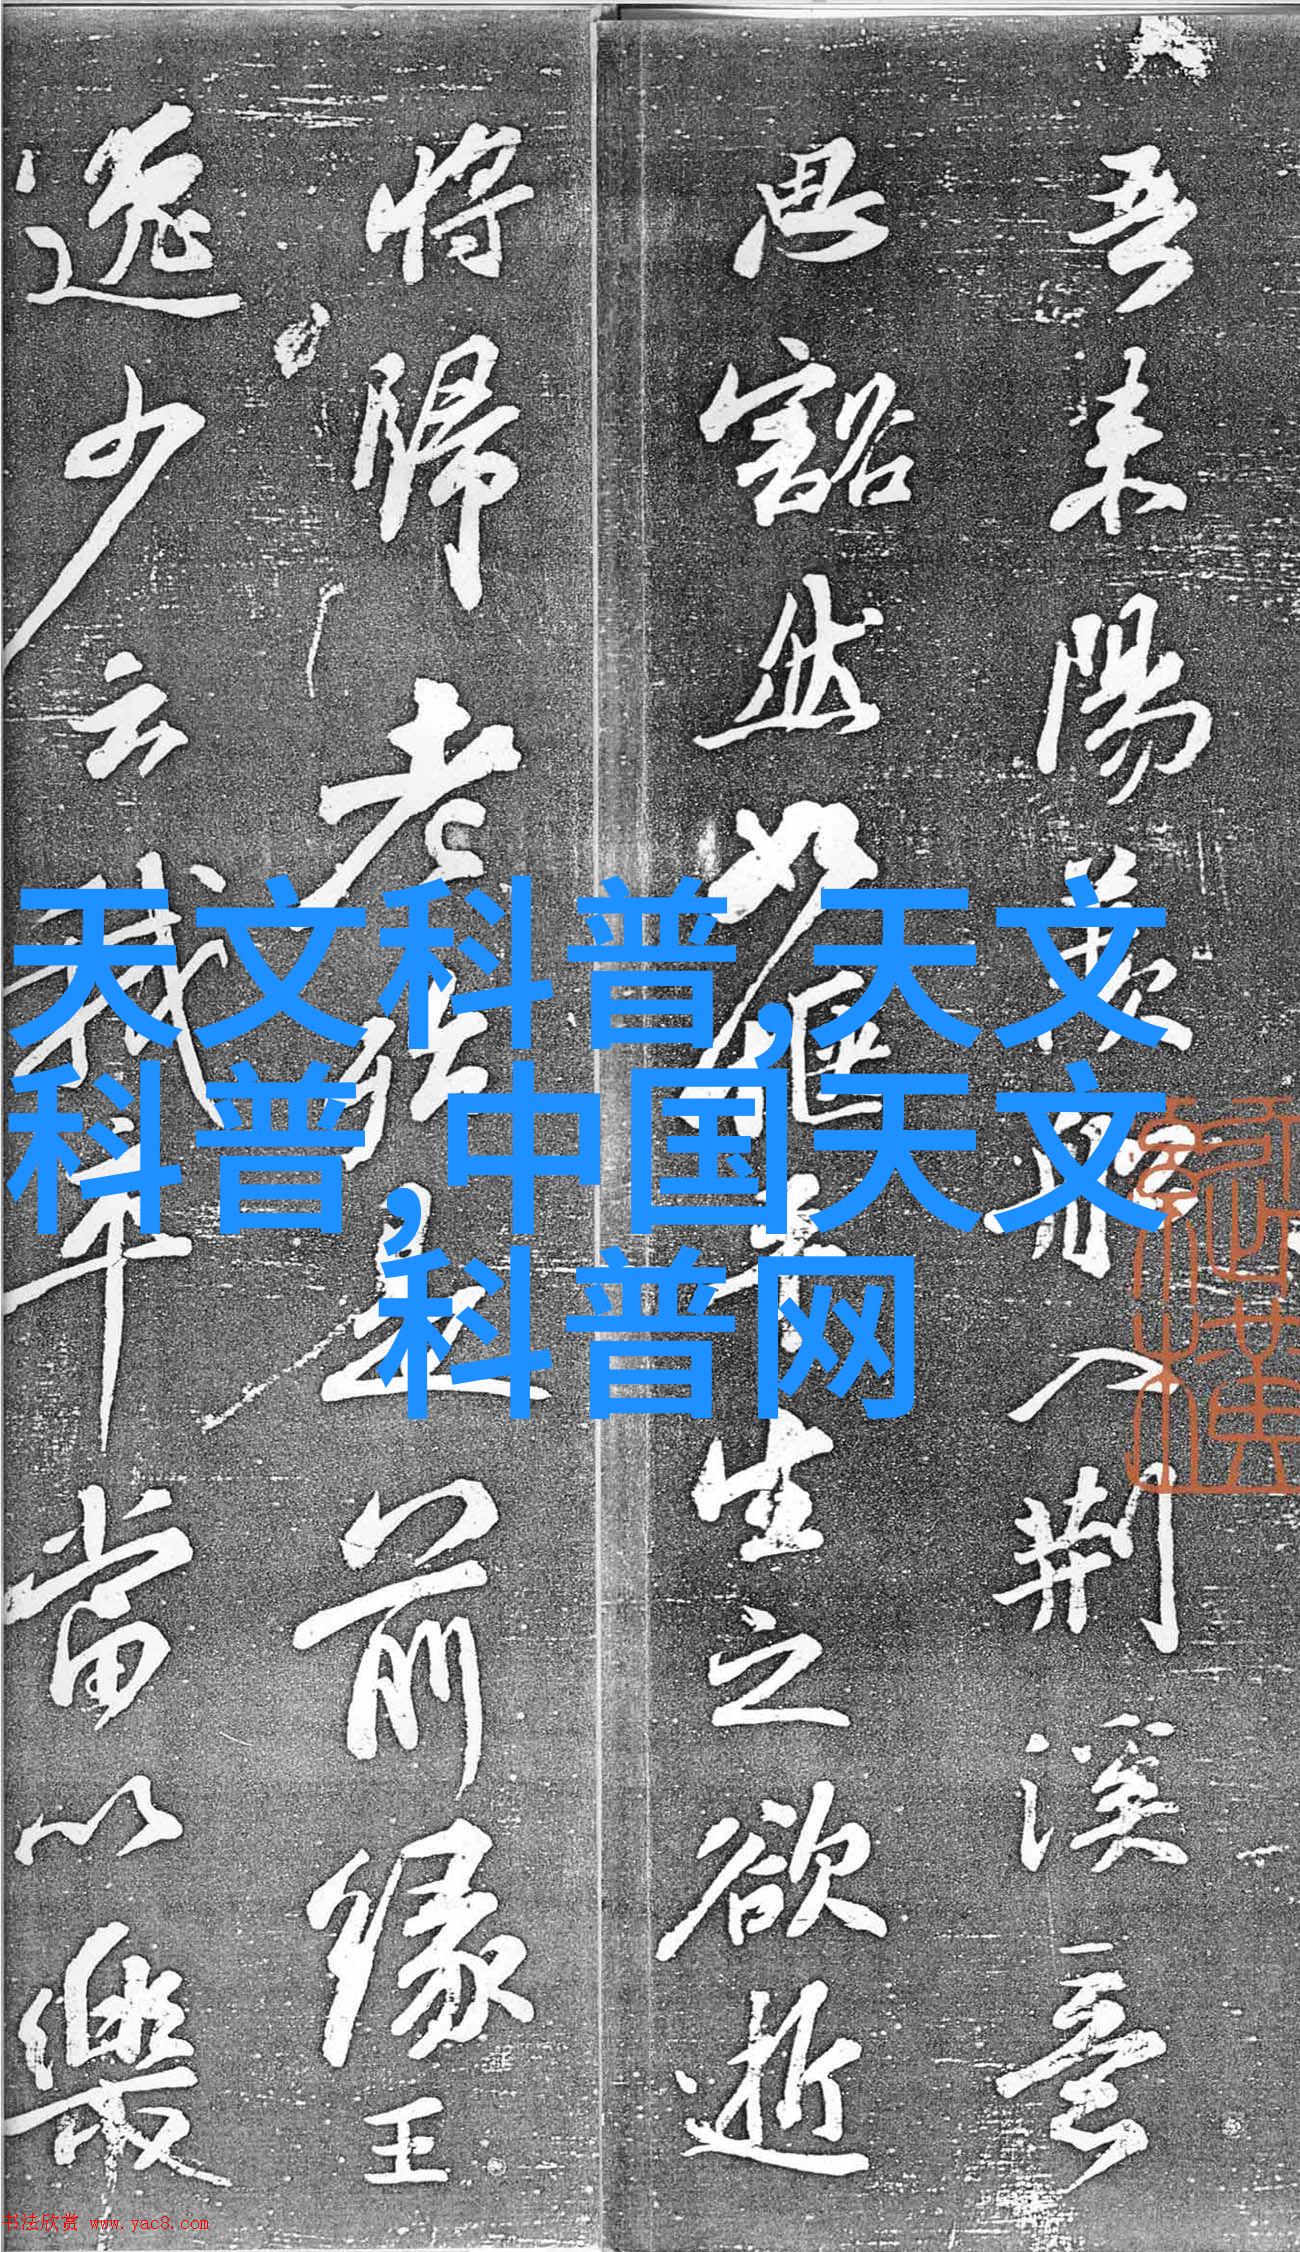 吾来陽羡船入荆溪意
思豁然如惬平生之欲逝
将歸老殆是前缘王
逸少云我卒當以樂
天文科普,天文
科普,中国天文
科普网
书法欣赏 www.yac8.com